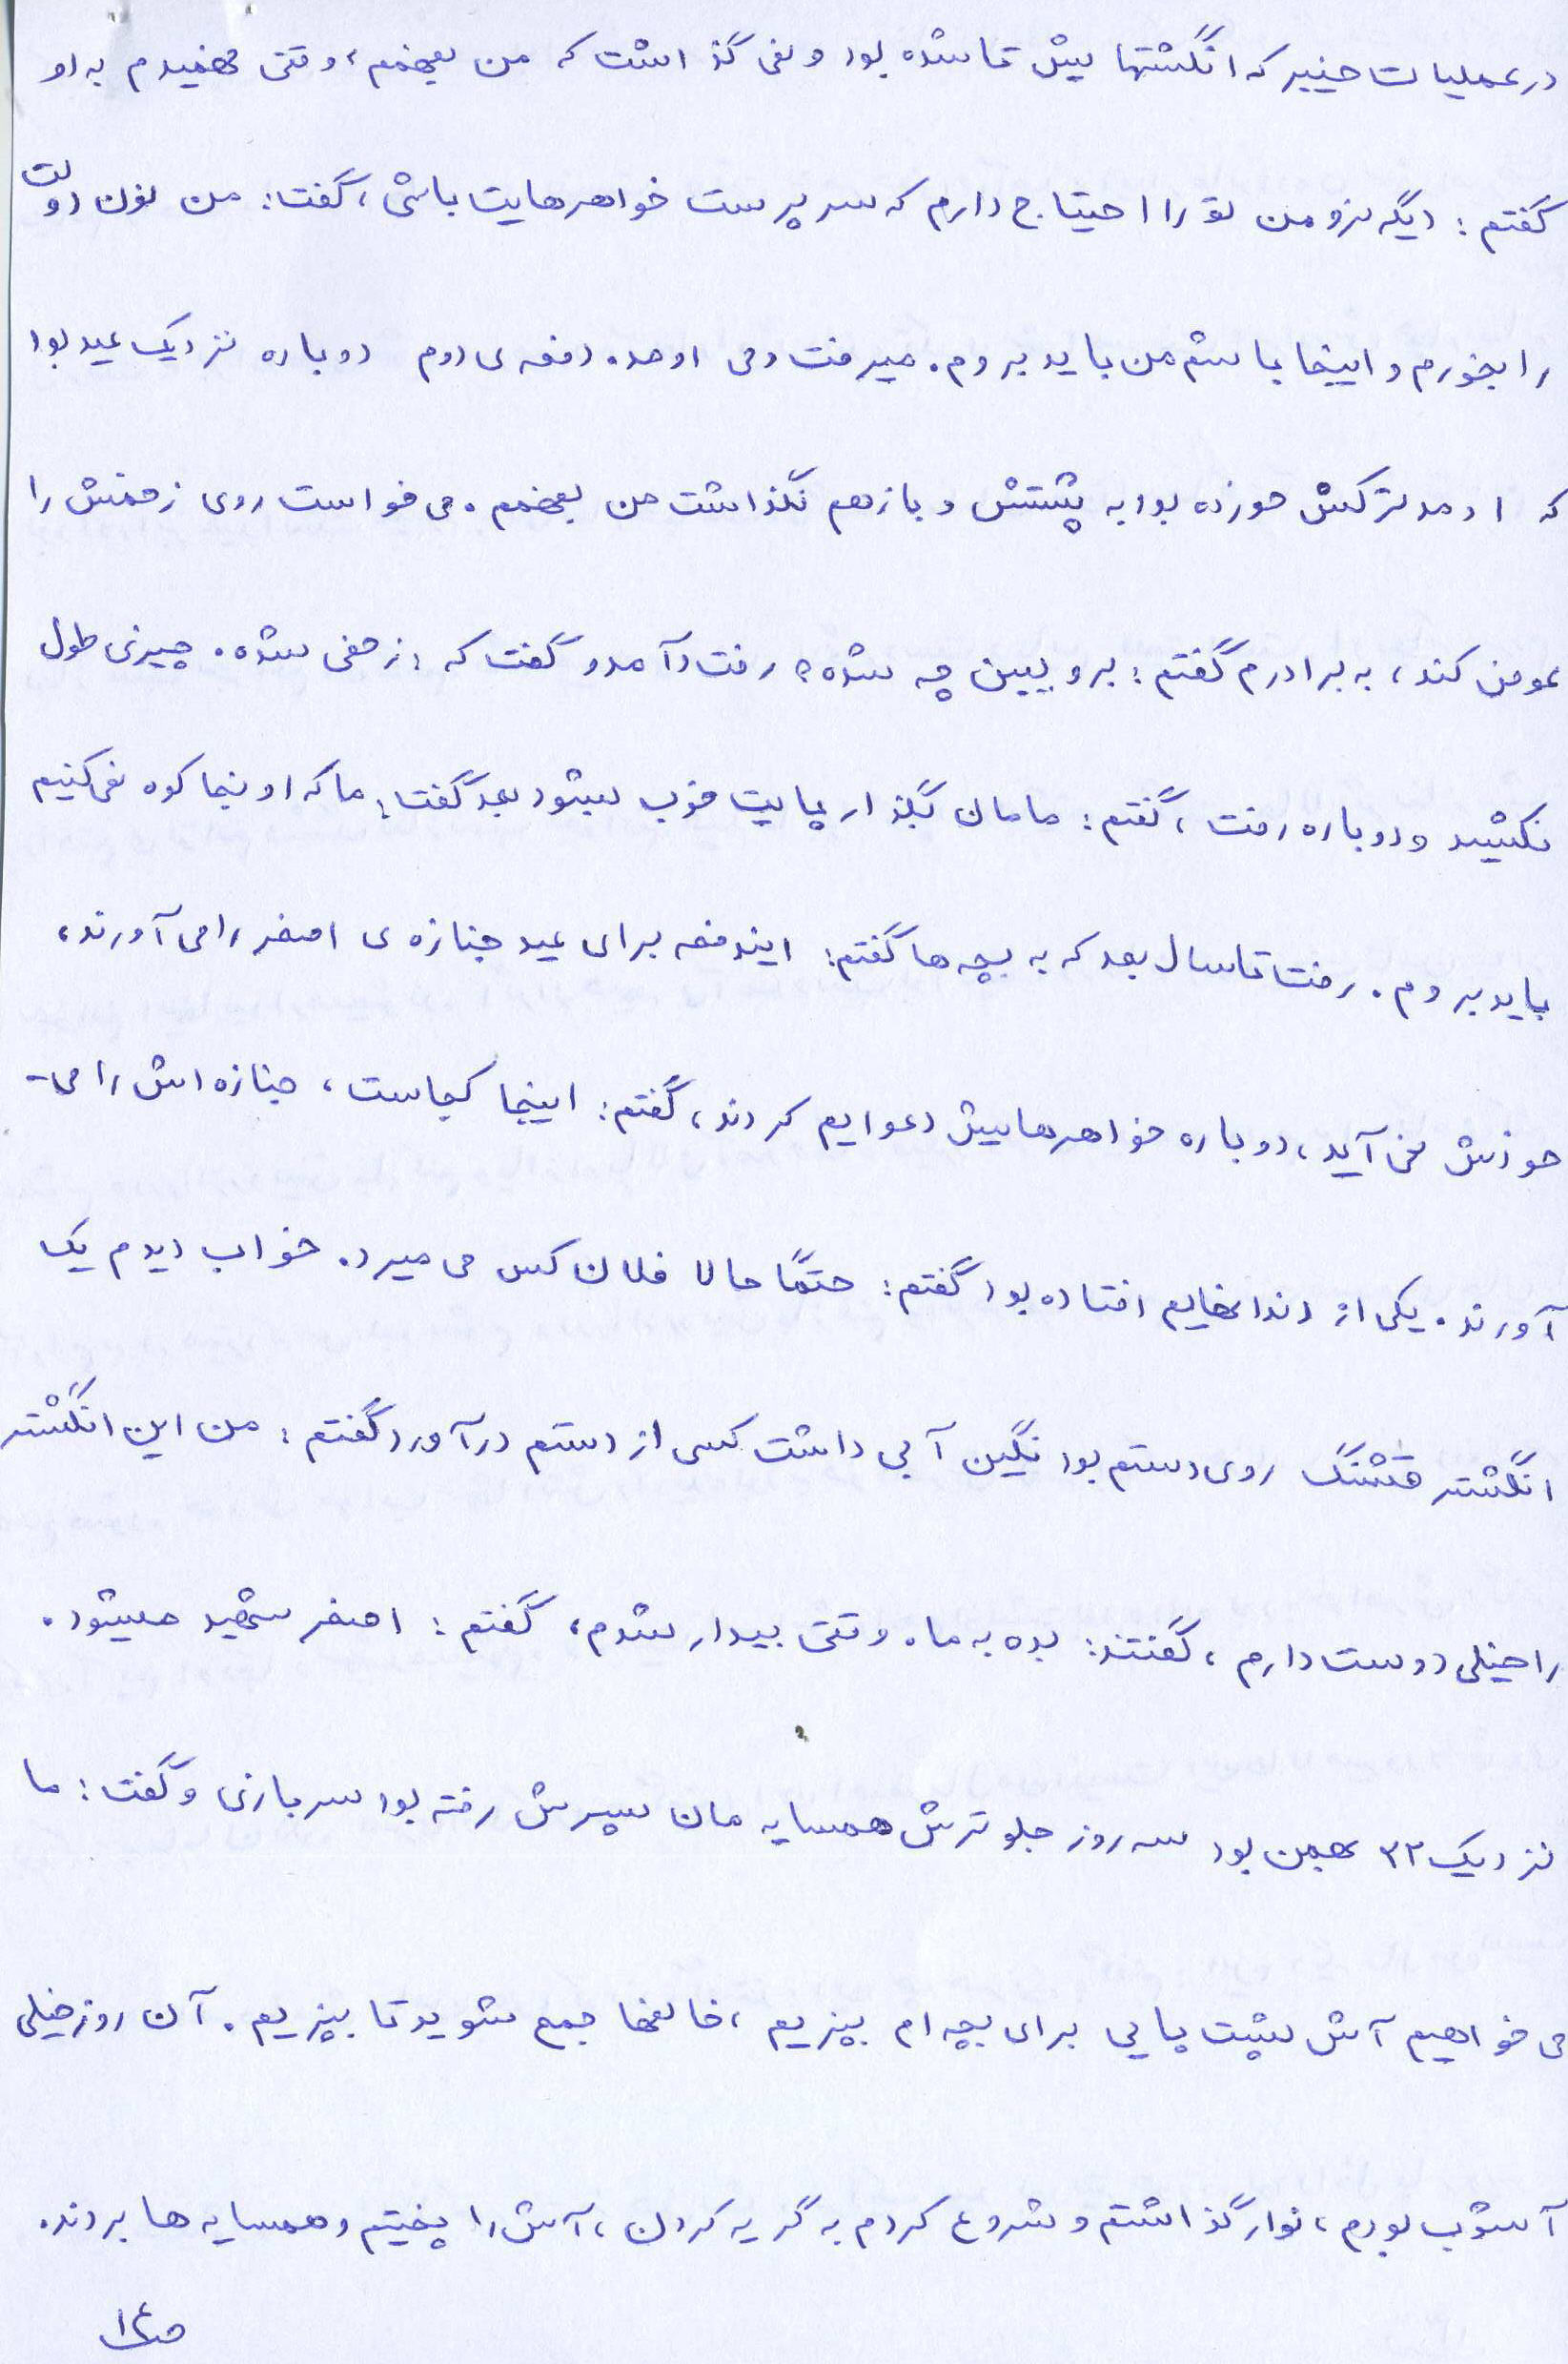 در عملیات خیبر که انگشتهایش تا شده بود و نمی گذاشت که من بفهمم، وقتی فهمیدم به او
گفتم: دیگه نرو من تو را احتیاج دارم که سرپرست خواهرهایت باشی، گفت: من نون دولت
را بخورم و اینجا باشم من باید بروم. میرفت و می اومد. دفعه ی دوم دوباره نزدیک عید بود
که اومد ترکش خورده بود به پشتش و باز هم نگذاشت من بفهمم. می خواست روی زخمش را
عوض کند، به برادرم گفتم: برو ببین چه شده؟ رفت و آمد و گفت که: زخمی شده. چیزی طول
نکشید و دوباره رفت، گفتم: مامان بگذار پایت خوب بشود بعد گفت: ما که اونجا کوه نمی کنیم
باید بروم. رفت تا سال بعد که به بچه ها گفتم: ایندفعه برای عید جنازه ی اصغر را می آورند،
خودش نمی آید، دوباره خواهرهایش دعوایم کردند، گفتم: اینجا کجاست، جنازه اش را می-
آورند. یکی از دندانهایم افتاده بود گفتم: حتماً حالا فلان کس می میرد. خواب دیدم یک
انگشتر قشنگ روی دستم بود نگین آبی داشت کسی از دستم درآورد گفتم: من این انگشتر
را خیلی دوست دارم، گفتند: بده به ما. وقتی بیدار شدم، گفتم: اصغر شهید میشود.
نزدیک ۲۲ بهمن بود سه روز جلوترش همسایه مان پسرش رفته بود سربازی و گفت: ما
می خواهیم آش پشت پایی برای بچه ام بپزیم، خانمها جمع شوید تا بپزیم. آن روز خیلی
آشوب بودم، نوار گذاشتم و شروع کردم به گریه کردن، آش را پختیم و همسایه ها بردند.
ص۱۴